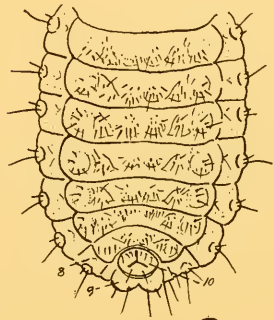 8
9
10